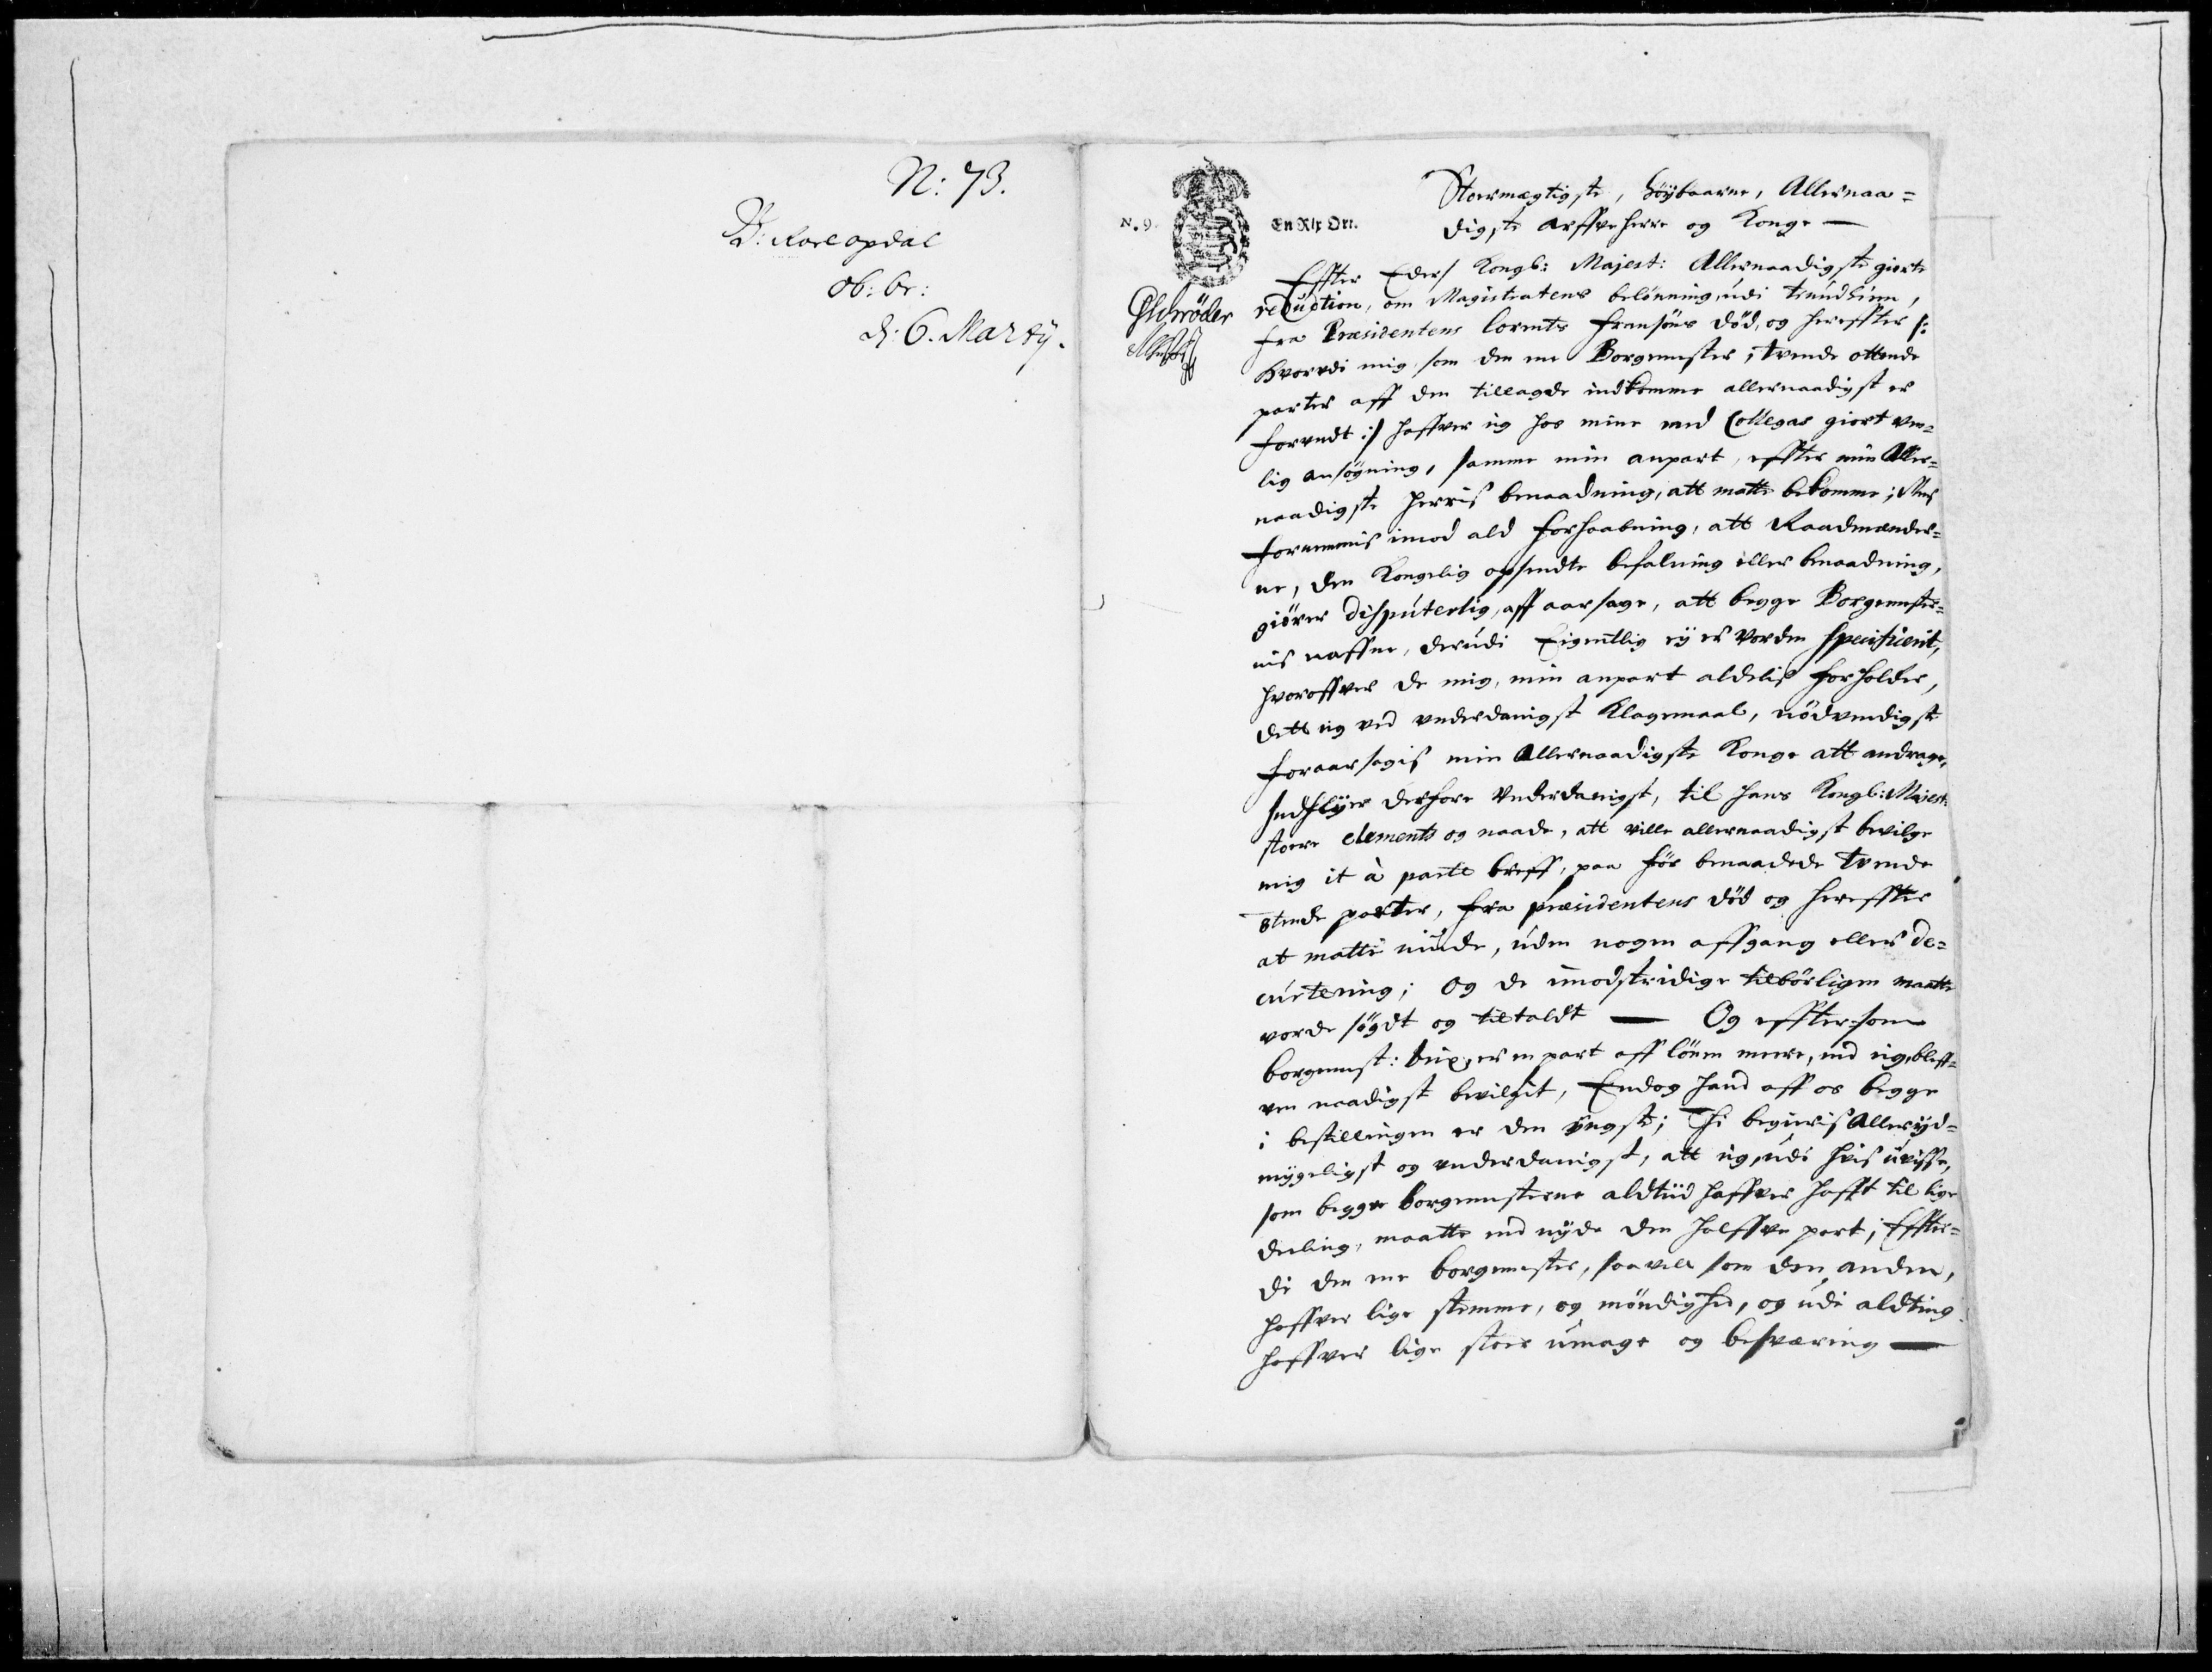 N: 73.
B: Roel opdal
ob: br:
d: 6. Marty.
N. 9.
En Rix Ort.
Schröder
Stoermægtigste, höybaarne, Allernaa=
digste arffve herre og Konge —
Effter Eders Kongl: Majest: Allernaadigste giorte
reduction, om Magistratens belönning, udi trundhiem,
fra Præsidentens lorents fransöns död, og hereffter /:
hvorudi mig, som den ene Borgemester, trende ottende
parter aff den tillagde indkomme allernaadigst er
forundt :/ haffver ieg hos mine med Collegas giort ven=
lig ansögning, samme min anpart, effter min Aller=
naadigste herris benaadning, att motte bekomme; Mens
fornemmis imod ald forhaabning, att Raadmænder=
ne, den Kongelig opsendte befalning eller benaadning,
giörer disputerlig, aff aarsage, att begge Borgemester=
nis naffne, derudi Eigentlig ey er vorden specificerit,
hvoroffver de mig, min anpart aldelis forholder,
dett ieg ved underdanigst Klagemaal, nödvendigst
foraarsagis min Allernaadigste Konge att andrage,
Indflyer derfore Underdanigst, til hans Kongl: Majest:
stoere clements og naade, att ville allernaadigst bevilge
mig it à parte breff, paa för benaadede trende
8tende parter, fra præsidentens död og hereffter
at motte niude, uden nogen affgang eller de=
curtering; og de imodstridige tilbörligen maatte
vorde sögdt og tiltaldt — Og effter som
borgemest: bux, er en part aff lönen meere, end ieg, bleff=
ven naadigst bevilgit, Endog hand aff os begge
i bestillingen er den yngste; Thi begieris Allerÿd=
mygeligst og underdanigst, att ieg, udi hvis uvisse,
som begge borgemesterne aldtiid haffver hafft til lige
deeling, maatte end nyde den halffve part; Effter=
di den ene borgemester, saa vell som den anden,
haffver lige stemme, og möndighed, og udi aldting
haffver lige stoer umage og besværing —